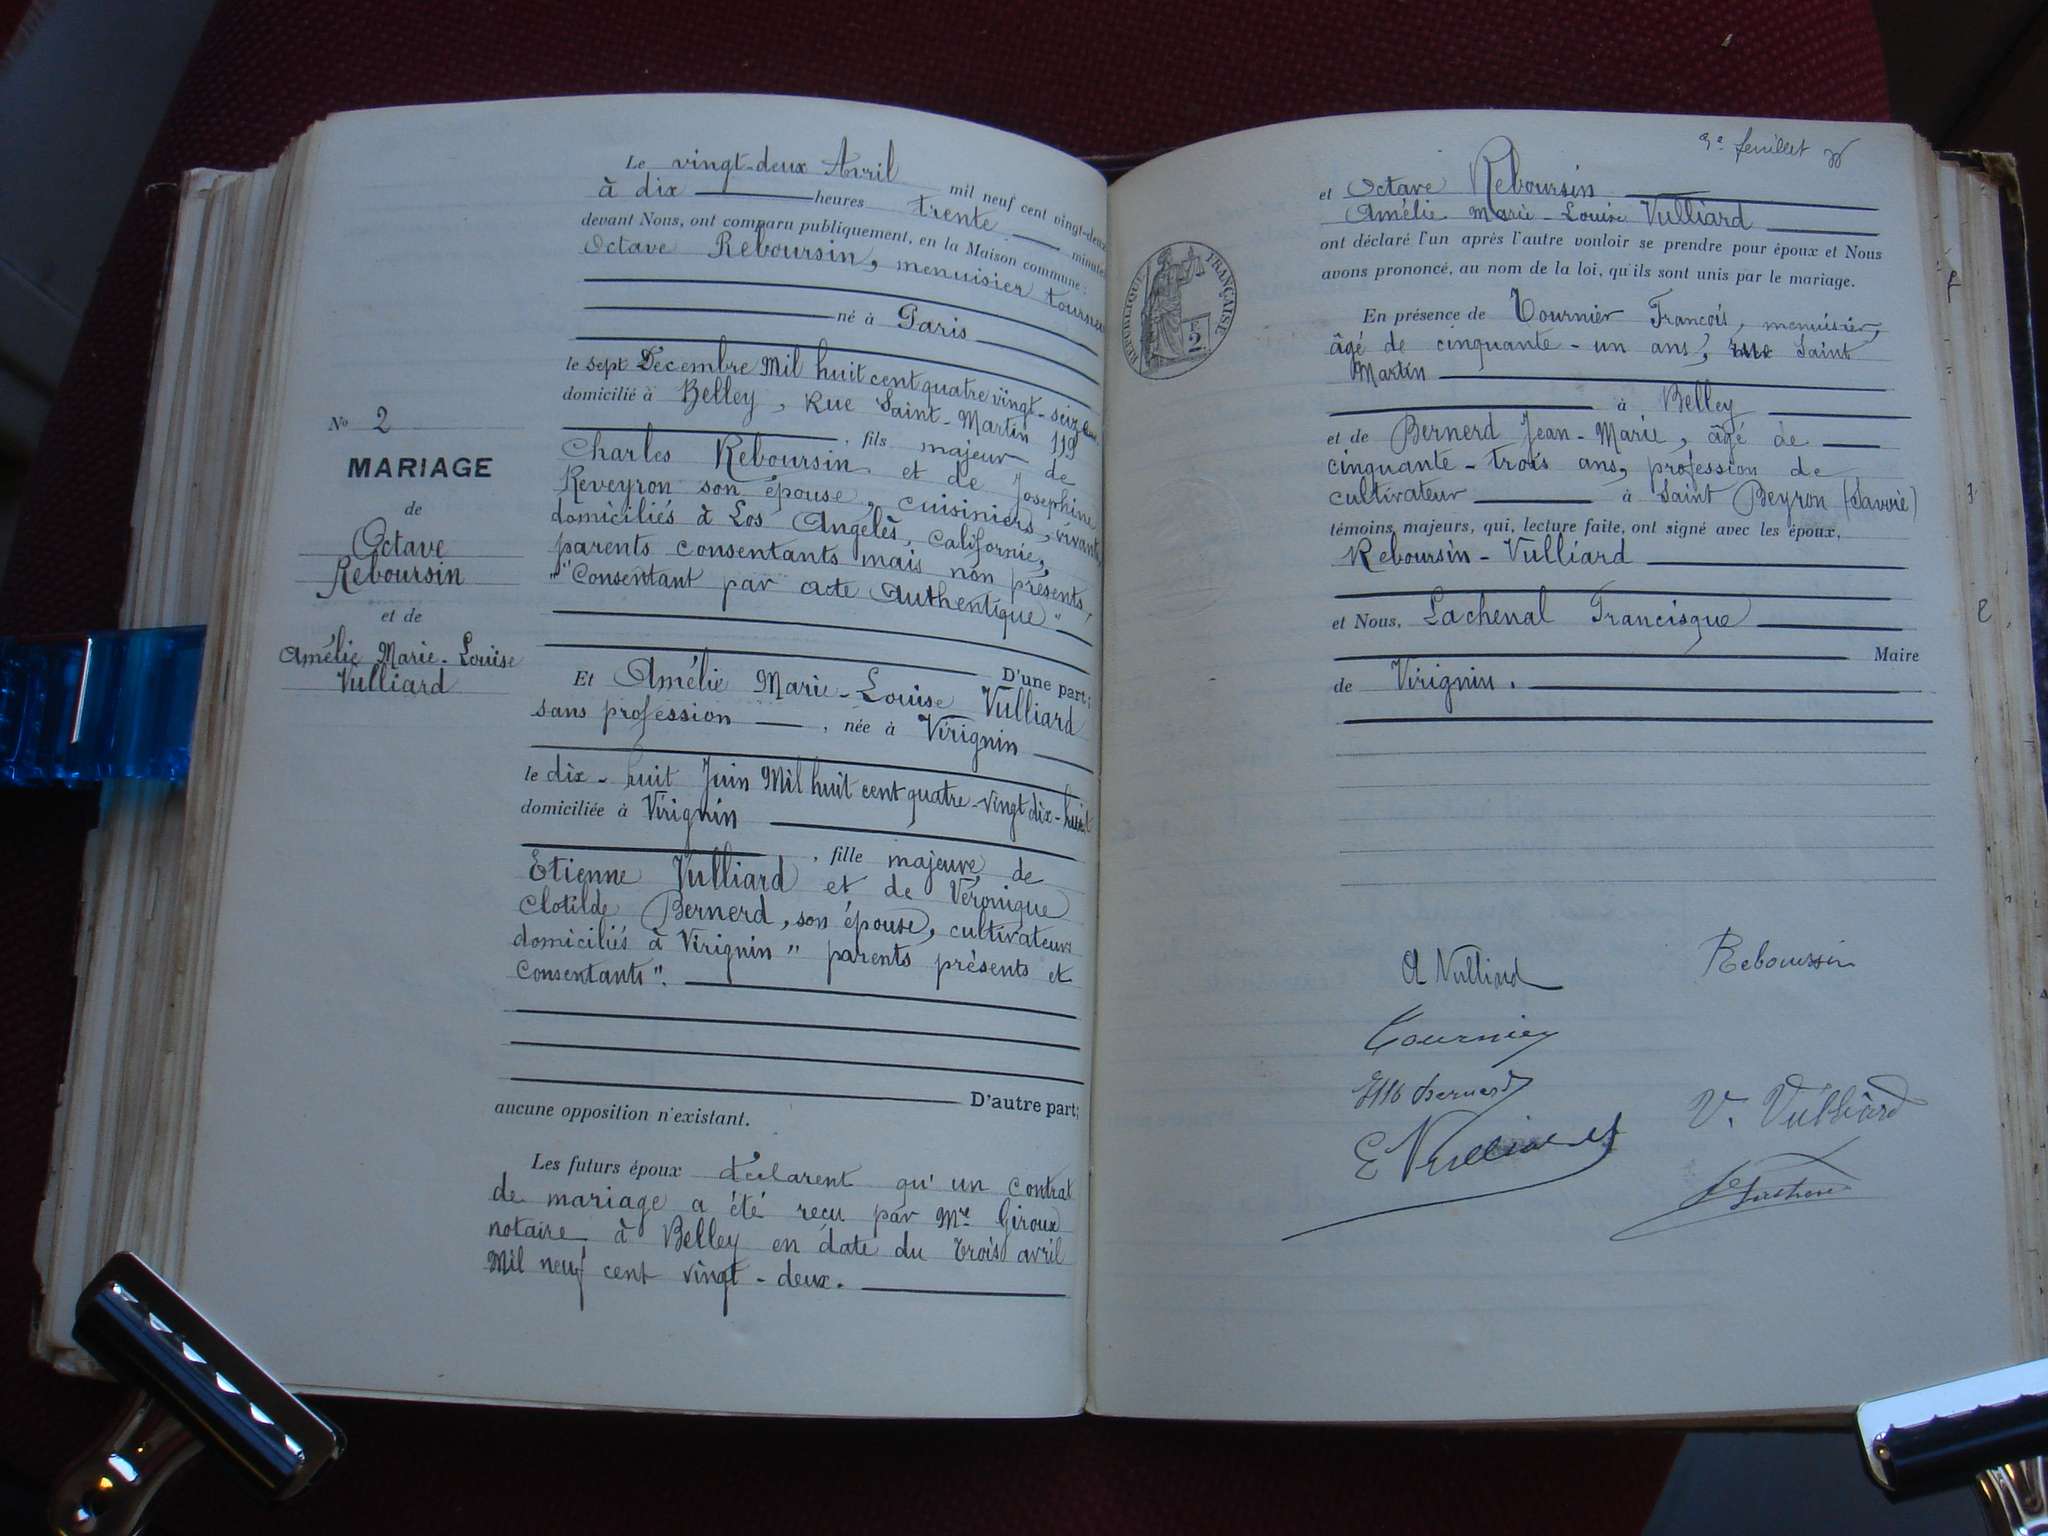 Le vingt-deux Avril mil neuf cent vingt-deux
à dix heures trente minutes
devant Nous, ont comparu publiquement, en la Maison commune :
Octave Reboursin, menuisier tourneur
né à Paris
le sept Decembre Mil huit cent quatre vingt-seize
domicilié à Belley, Rue Saint-Martin 119
, fils majeur de
Charles Reboursin et de Josephine
Reveyron son épouse, cuisiniers, vivants,
domiciliés à Los Angelès, Californie,
parents consentants mais non présents,
"Consentant par acte Authentique"
D'une part;
Et Amélie Marie-Louise Vulliard
sans profession, née à Virignin
le dix-huit Juin Mil huit cent quatre-vingt dix-huit
domiciliée à Virignin
, fille majeure de
Etienne Vulliard et de Véronique
Clotilde Bernerd, son épouse, cultivateurs
domiciliés à Virignin" parents présents et
Consentants".
D'autre part;
aucune opposition n'existant.
Les futurs époux déclarent qu'un contrat
de mariage a été reçu par Me Giroux
notaire à Belley en date du trois avril
Mil neuf cent vingt-deux.
No 2
MARIAGE
de
Octave
Reboursin
et de
Amélie Marie-Louise
Vulliard
3e feuillet
et Octave Reboursin
Amélie Marie-Louise Vulliard
ont déclaré l'un après l'autre vouloir se prendre pour époux et Nous
avons prononcé, au nom de la loi, qu'ils sont unis par le mariage.
RÉPUBLIQUE FRANÇAISE
2
En présence de Tournier François, menuisier,
âgé de cinquante-un ans, rue Saint
Martin
à Belley
et de Bernerd Jean-Marie, âgé de
cinquante-trois ans, profession de
cultivateur à Saint Beyron (Savoie)
témoins majeurs, qui, lecture faite, ont signé avec les époux,
Reboursin-Vulliard
et Nous, Lachenal Francisque
Maire
de Virignin.
A Vulliard
Reboursin
Tournier
V. Vulliard
E Vulliard